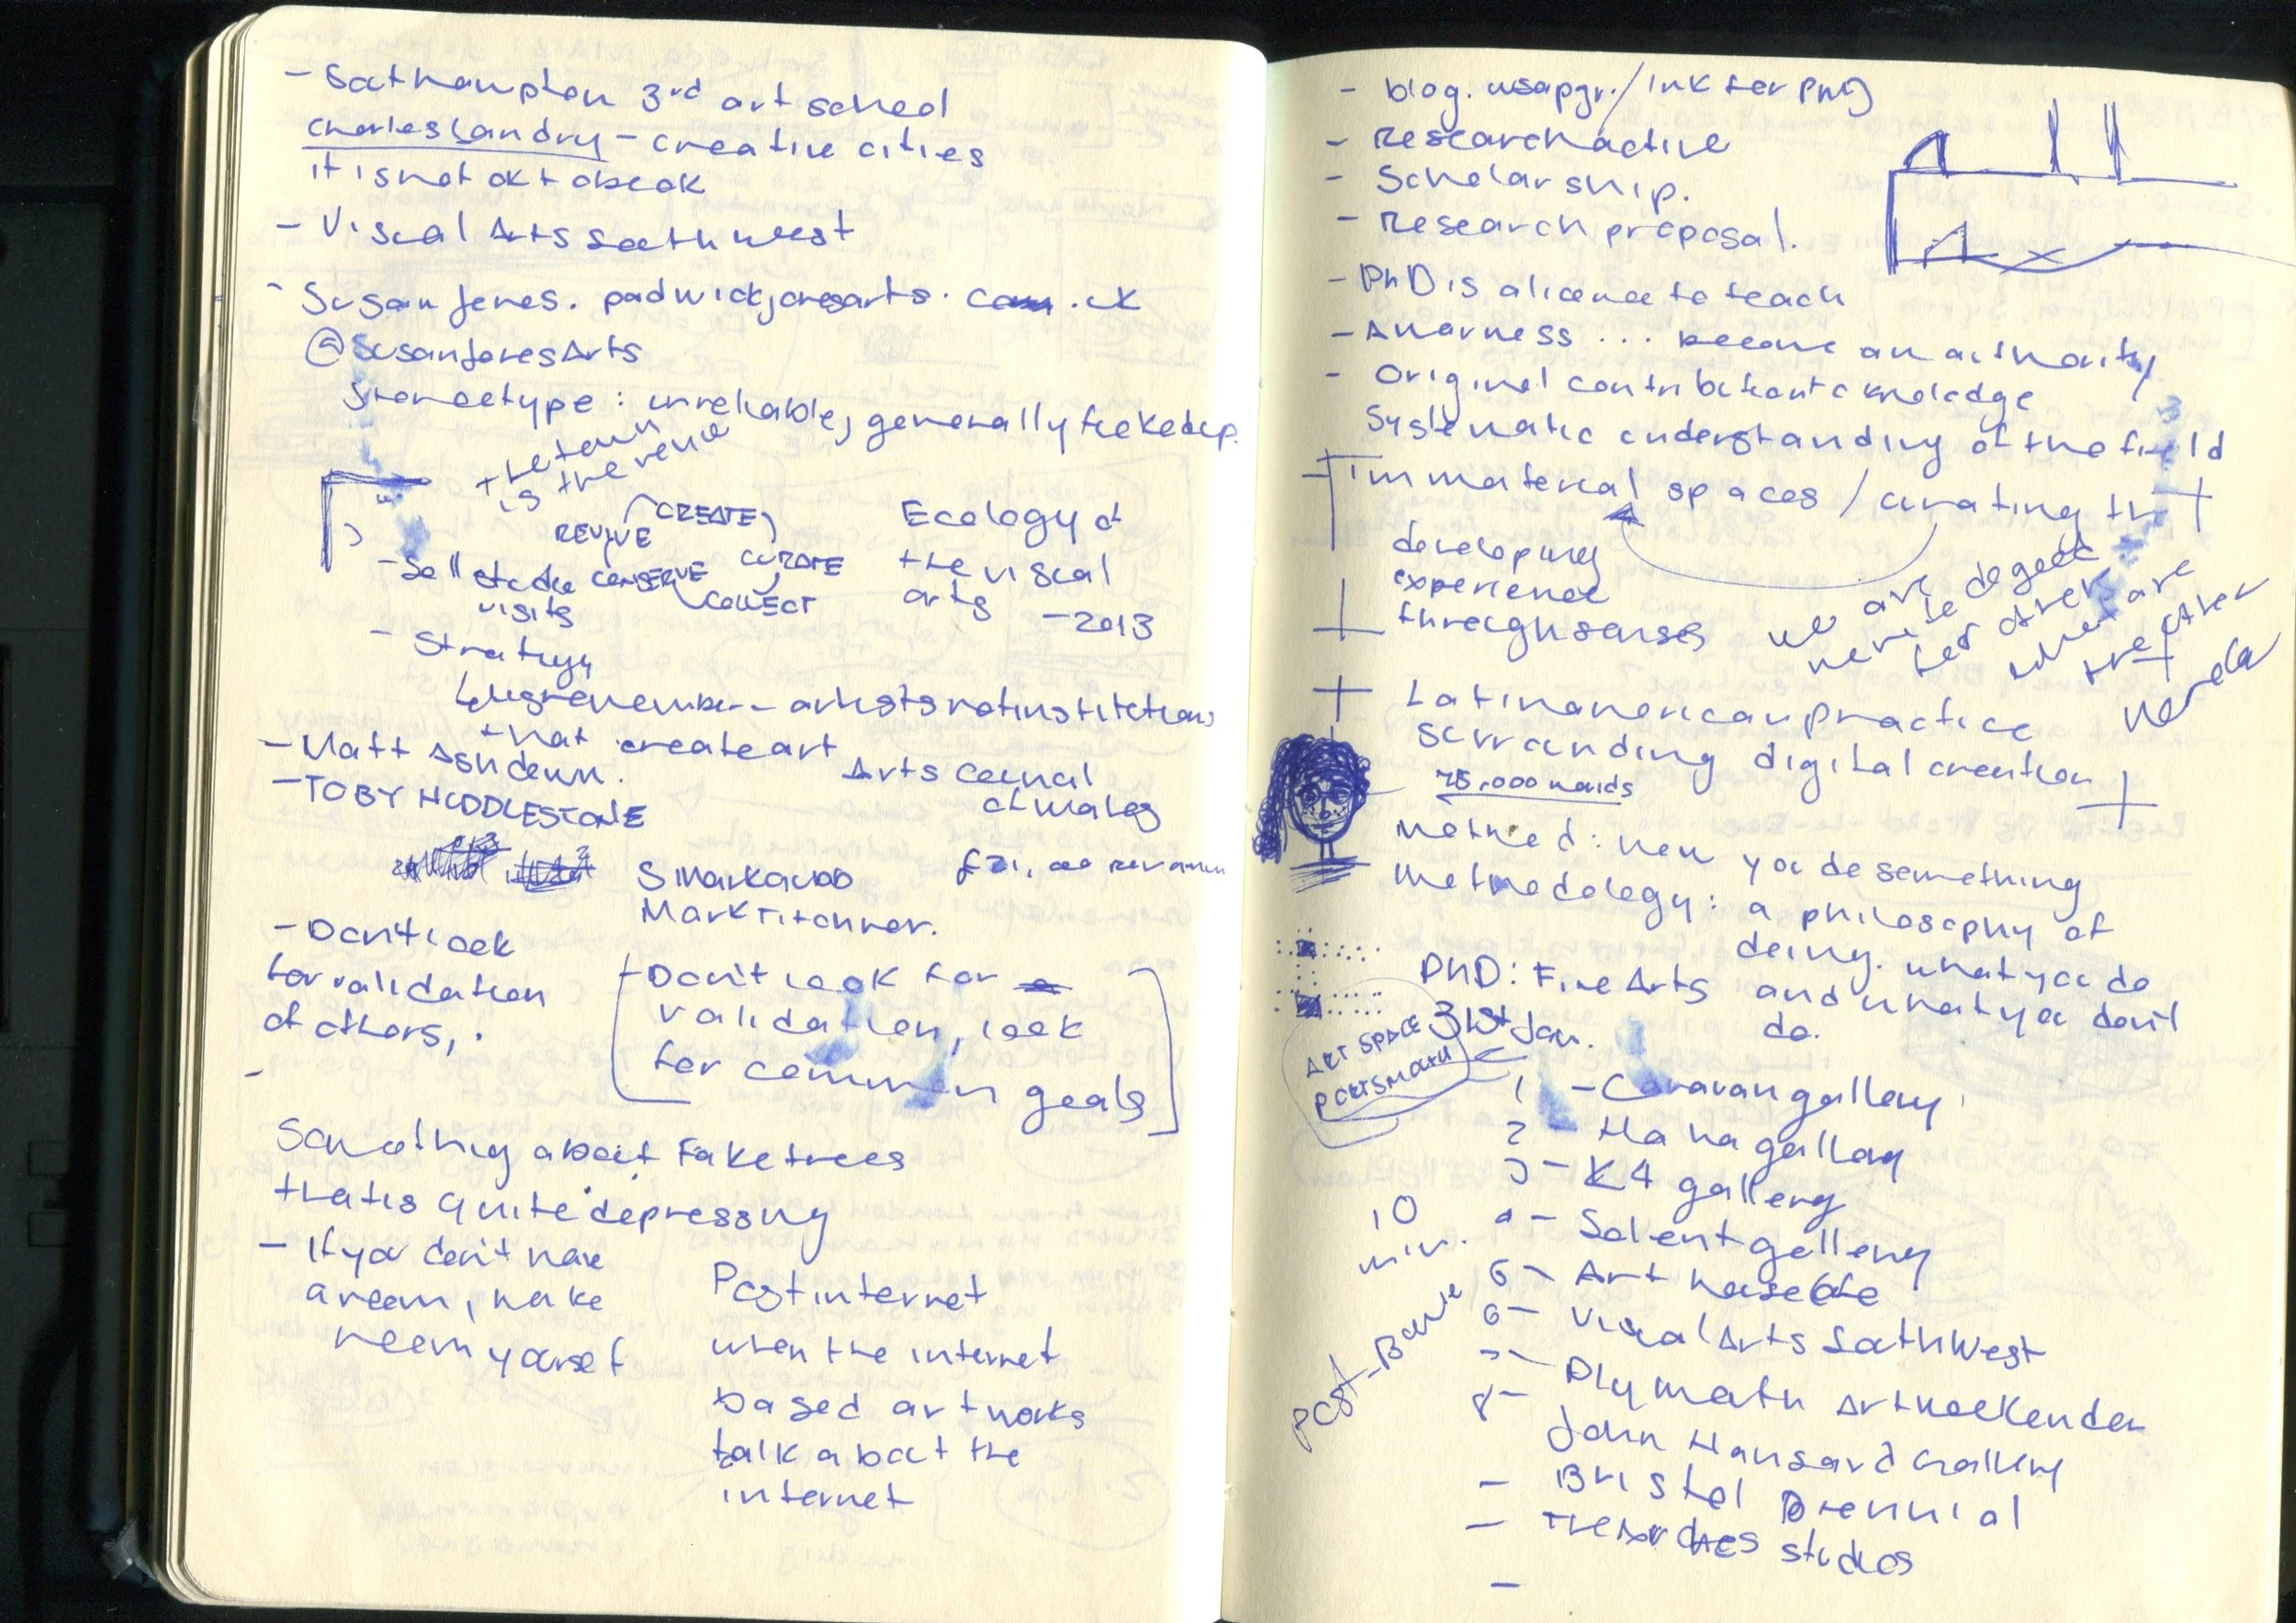 - Southampton 3rd art school
Charles Landry - creative cities
it is not ok to be ok
- Visual Arts South West
- Susan Jones. padwickjonesarts. co .uk
@SusanJonesArts
Stereotype : unreliable, generally
the town
is the venue
CREATE
REVIVE
CURATE
CONSERVE
COLLECT
- Sell studio
visits
Ecology of
the visual
arts - 2013
- Strategy
artists not institutions
that create art
- Matt Ashdown.
- TOBY HUDDLESTONE
Arts council
of wales
Mark Titchner.
- Don't look
for validation
of others, .
- Don't look for
validation, look
for common goals
-
Somothing about Fake trees
that is quite depressing
- If you don't have
a room, make
room yourself
Post internet
when the internet
based artworks
talk about the
internet
- Research active
- Scholarship.
- Research proposal.
- PhD is a licence to teach
- Awarness ... become an authority
- Original contribution to knoledge
Systematic understanding of the field
Immaterial spaces / curating
developing
experience
through senses
we are
the other
Latinamerican practice
surrounding digital creation
75,000 words
Method : how you do something
Methodology : a philosophy of
doing. what you do
and what you don't
do.
PhD : Fine Arts
31st Jan.
ART SPACE
PORTSMOUTH
1 - Caravan gallery
2 - Ha ha gallery
3 - K4 gallery
4 - Solent gallery
10
min.
5 - Art house Cafe
6 - Visual Arts South West
7 - Plymouth Art weekender
8 - John Hansard Gallery
- Bristol Biennial
- The Arches studios
-